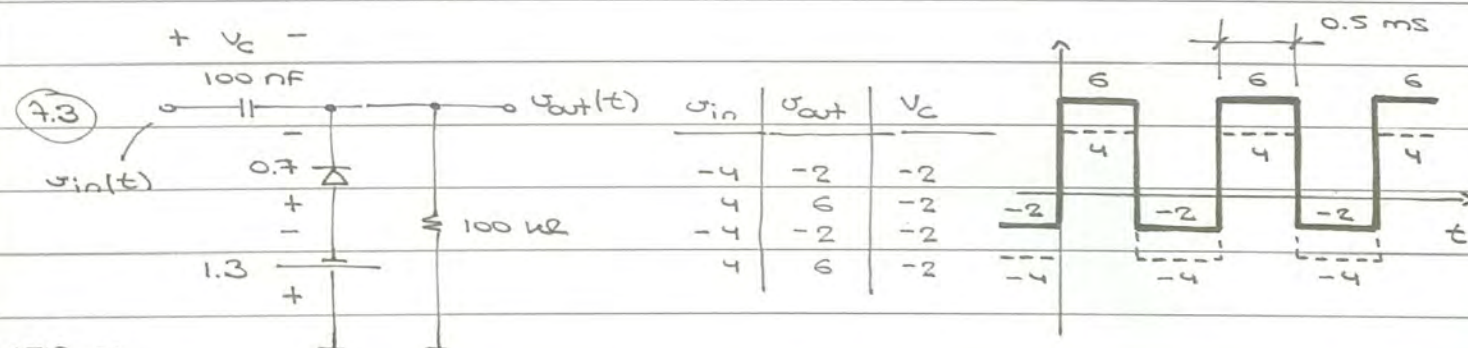 + Vc -
100 nF
7.3
vin(t)
vout(t)
-
0.7
+
-
1.3
+
100 kΩ
vin | vout | Vc
-4 | -2 | -2
4 | 6 | -2
-4 | -2 | -2
4 | 6 | -2
0.5 ms
6 6 6
4 4 4
-2 -2 -2
t
-4 -4 -4